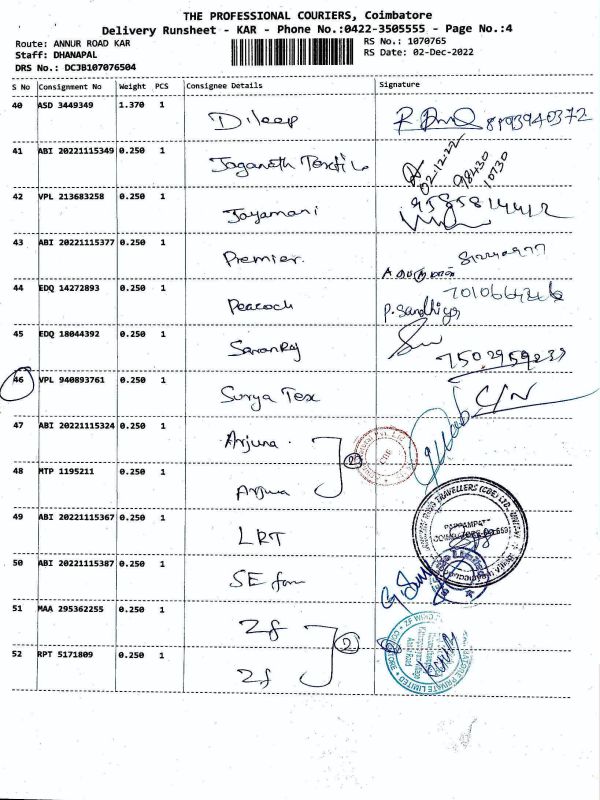 THE PROFESSIONAL COURIERS, Coimbatore
Delivery Runsheet - KAR - Phone No.:0422-3505555 - Page No.:4
Route: ANNUR ROAD KAR
RS No.: 1070765
Staff: DHANAPAL
RS Date: 02-Dec-2022
DRS No.: DCJB107076504
S No Consignment No Weight PCS Consignee Details Signature
40 ASD 3449349 1.370 1 Dileep 8193940372
41 ABI 20221115349 0.250 1 Jaganath Textile
02-12-22
98430
10730
42 VPL 213683258 0.250 1 Jayamani 9585814412
43 ABI 20221115377 0.250 1 Premier.
44 EDQ 14272893 0.250 1 Peacock
P. Sandhiya
45 EDQ 18044392 0.250 1 Saranraj
7502959239
46 VPL 940893761 0.250 1 Surya Tex C/N
47 ABI 20221115324 0.250 1 Arjuna. 2
48 MTP 1195211 0.250 1 Arjuna
49 ABI 20221115367 0.250 1 LRT
50 ABI 20221115387 0.250 1 SE fom
51 MAA 295362255 0.250 1 Zf 2
52 RPT 5171809 0.250 1 Zf